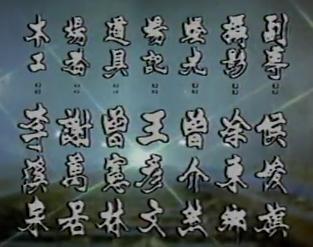 副導：侯俊旗
攝影：徐東鄉
燈光：曾介燕
場記：王彥文
道具：曾憲林
場務：謝萬
木工：李泉